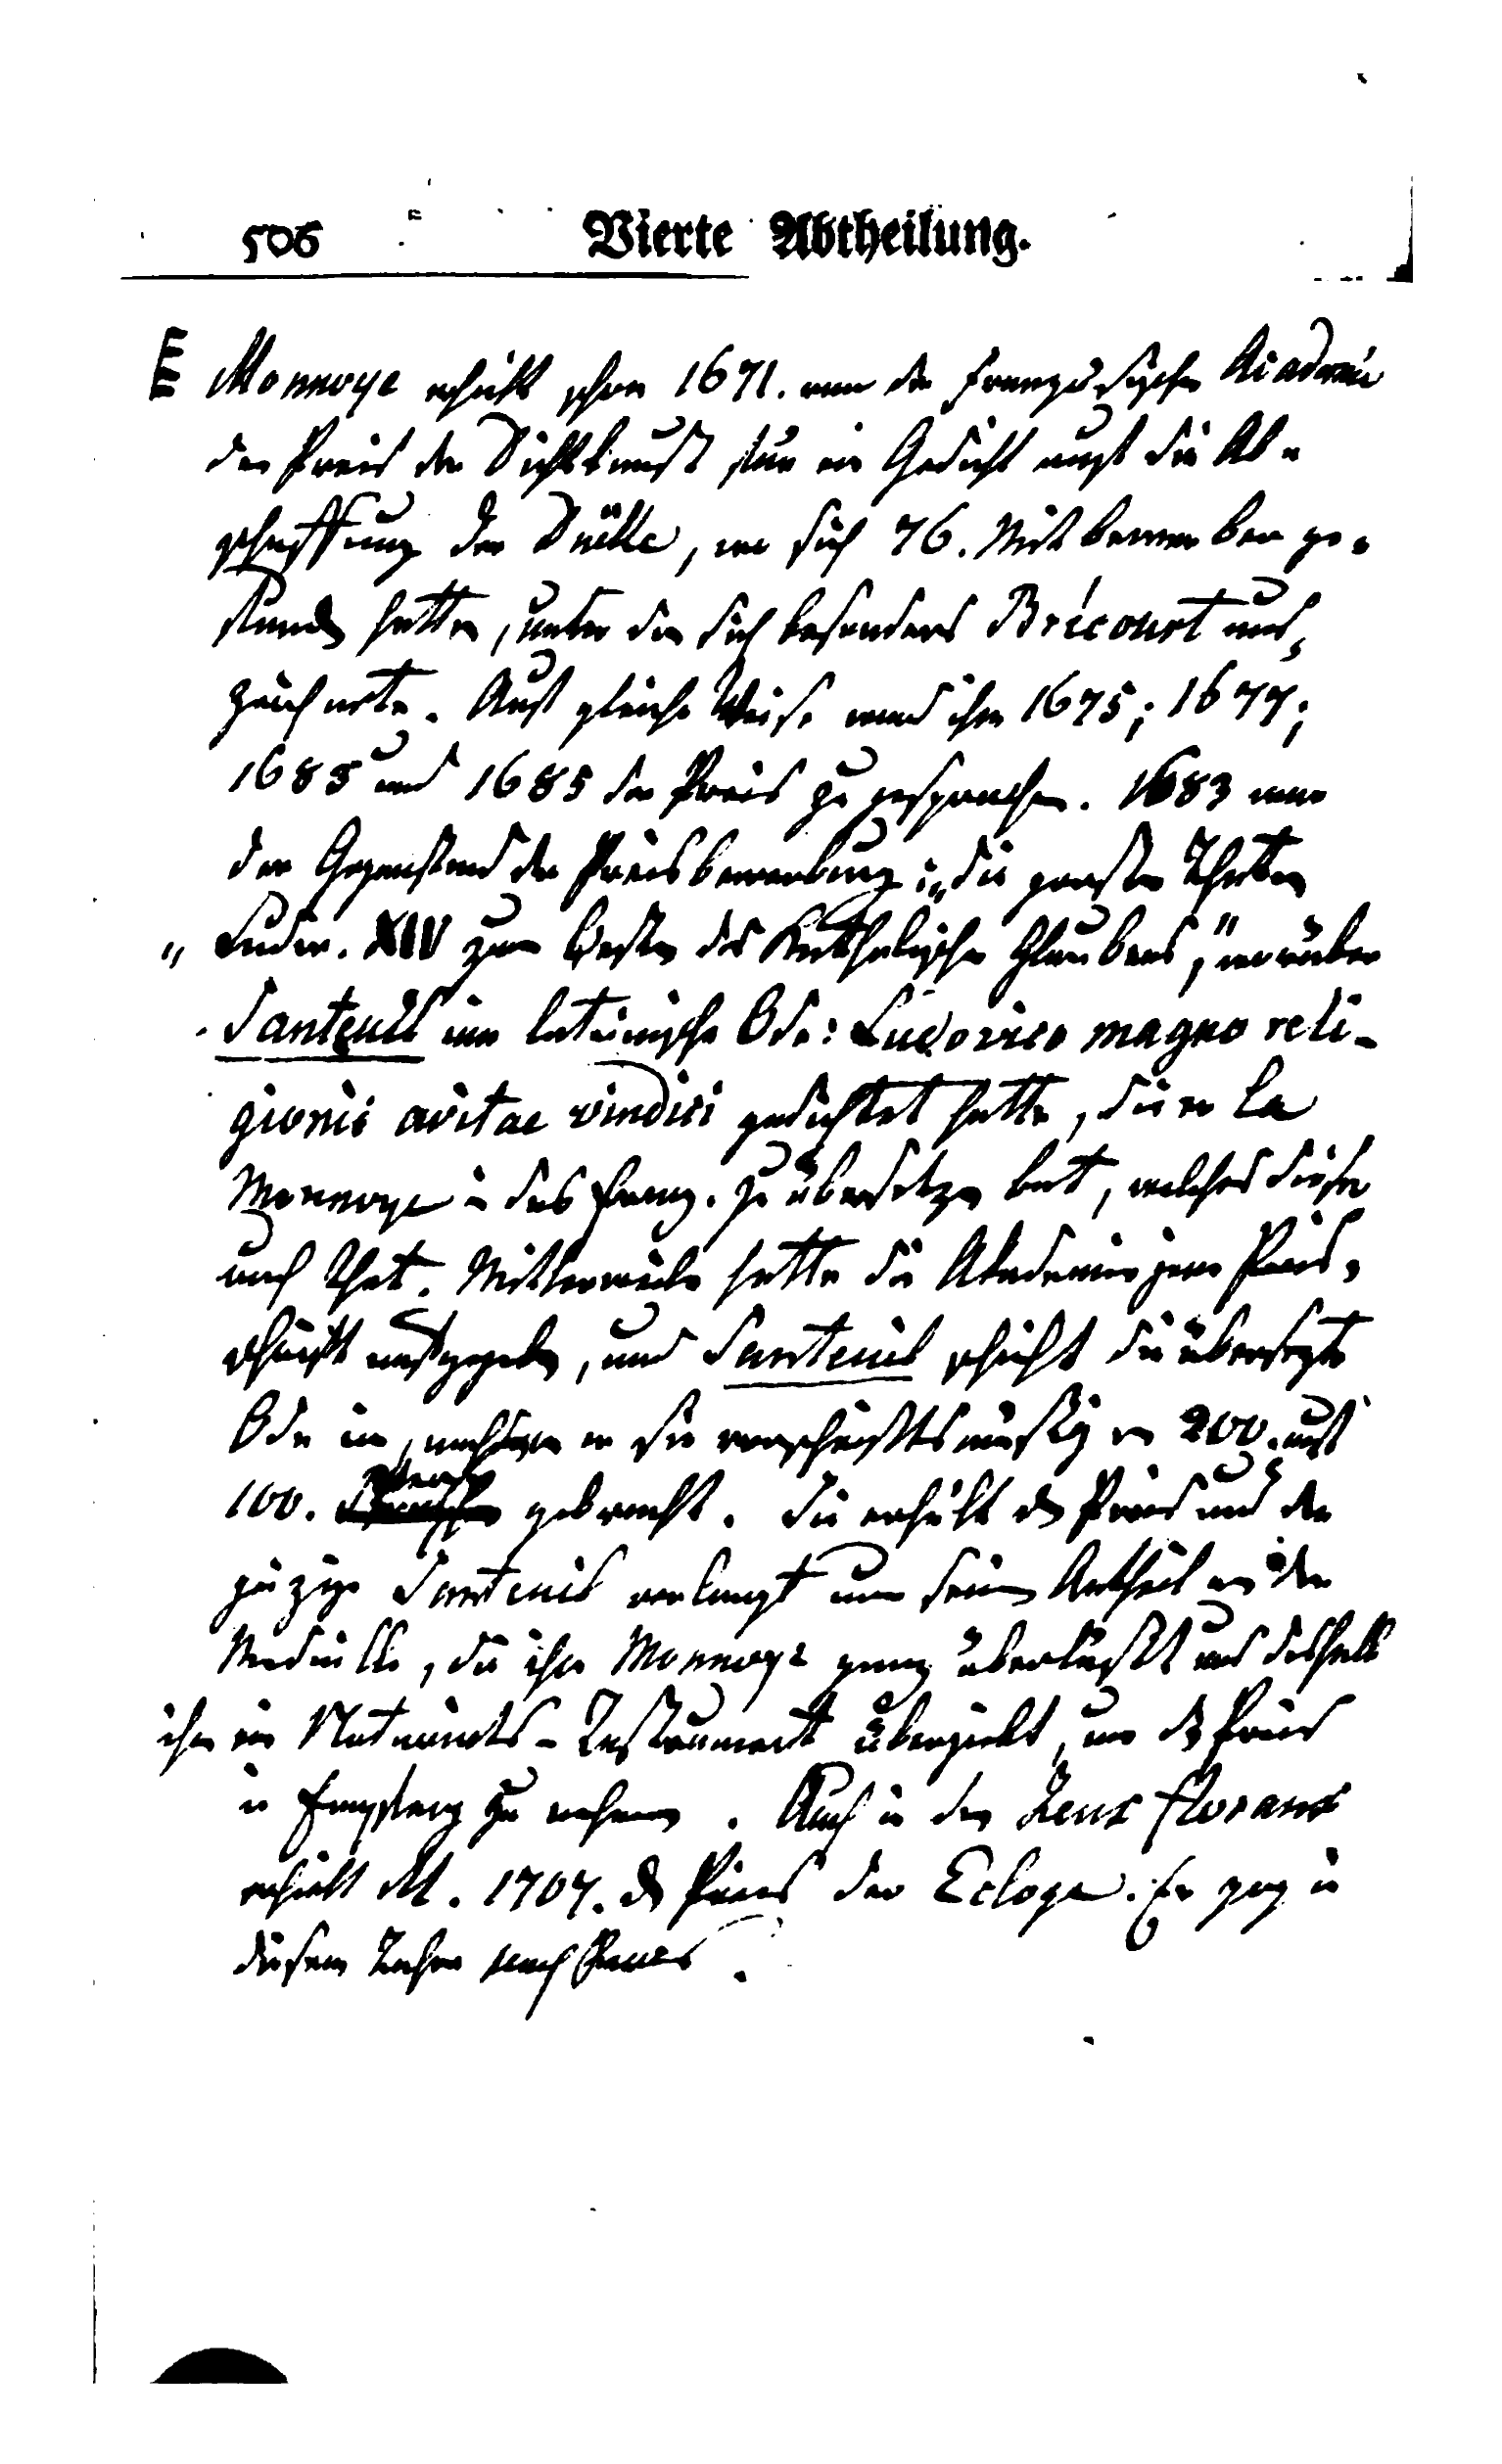 506 Vierte Abtheilung.
Monnoye erhielt schon 1671. von der französischen Academie
den Preis der Dichtkunst für ein Gedicht auf die Ab-
schaffung der Duelle, wo sich 76. Mitbewerber ge-
funden hatten, unter den sich besonders Brécourt aus-
zeichnete. Auf gleiche Weise ward ihm 1675; 1677;
1683 und 1685 der Preis zugesprochen. 1683 war
der Gegenstand der Preisbewerbung: „die großen Thaten
„Ludw. XIV zum Besten des Katholischen Glaubens," worüber
Santeuil eine lateinische Ode: Ludovico magno reli-
gionis avitae vindici gedichtet hatte, die er La
Monnoye in das Franz. zu übersetzen bat, welches dieser
auch that. Mittlerweile hatte die Akademie jene Preis-
schrift aufgegeben, und Santeuil schickt die übersezte
Ode ein, nachdem er sie vorschriftsmäßig von 200. auf
100. Verse gebracht. Sie erhält den Preis und der
geizige Santeuil verlangt nun seinen Antheil an der
Medaille, die ihm Monnoye ganz überläßt und deshalb
ihm ein Notariats-Instrument übergiebt, um den Preis
in Empfang zu nehmen. Auch in den Jeux floraux
erhielt M. 1707. den Preis der Ecloge. Er zog in
diesem Jahre nach Paris.